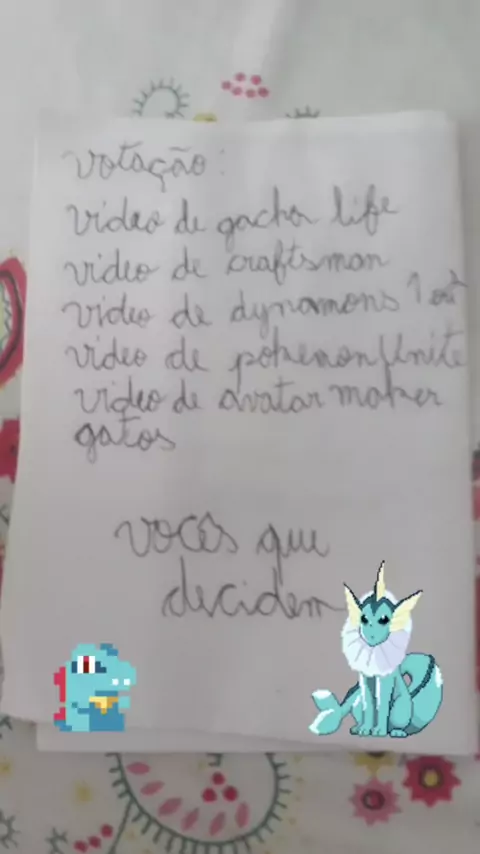 votação:
video de gacha life
video de craftsman
video de dynamons 1 ou 2
video de pokemon Unite
video de avatar maker
gatos
vocês que
decidem